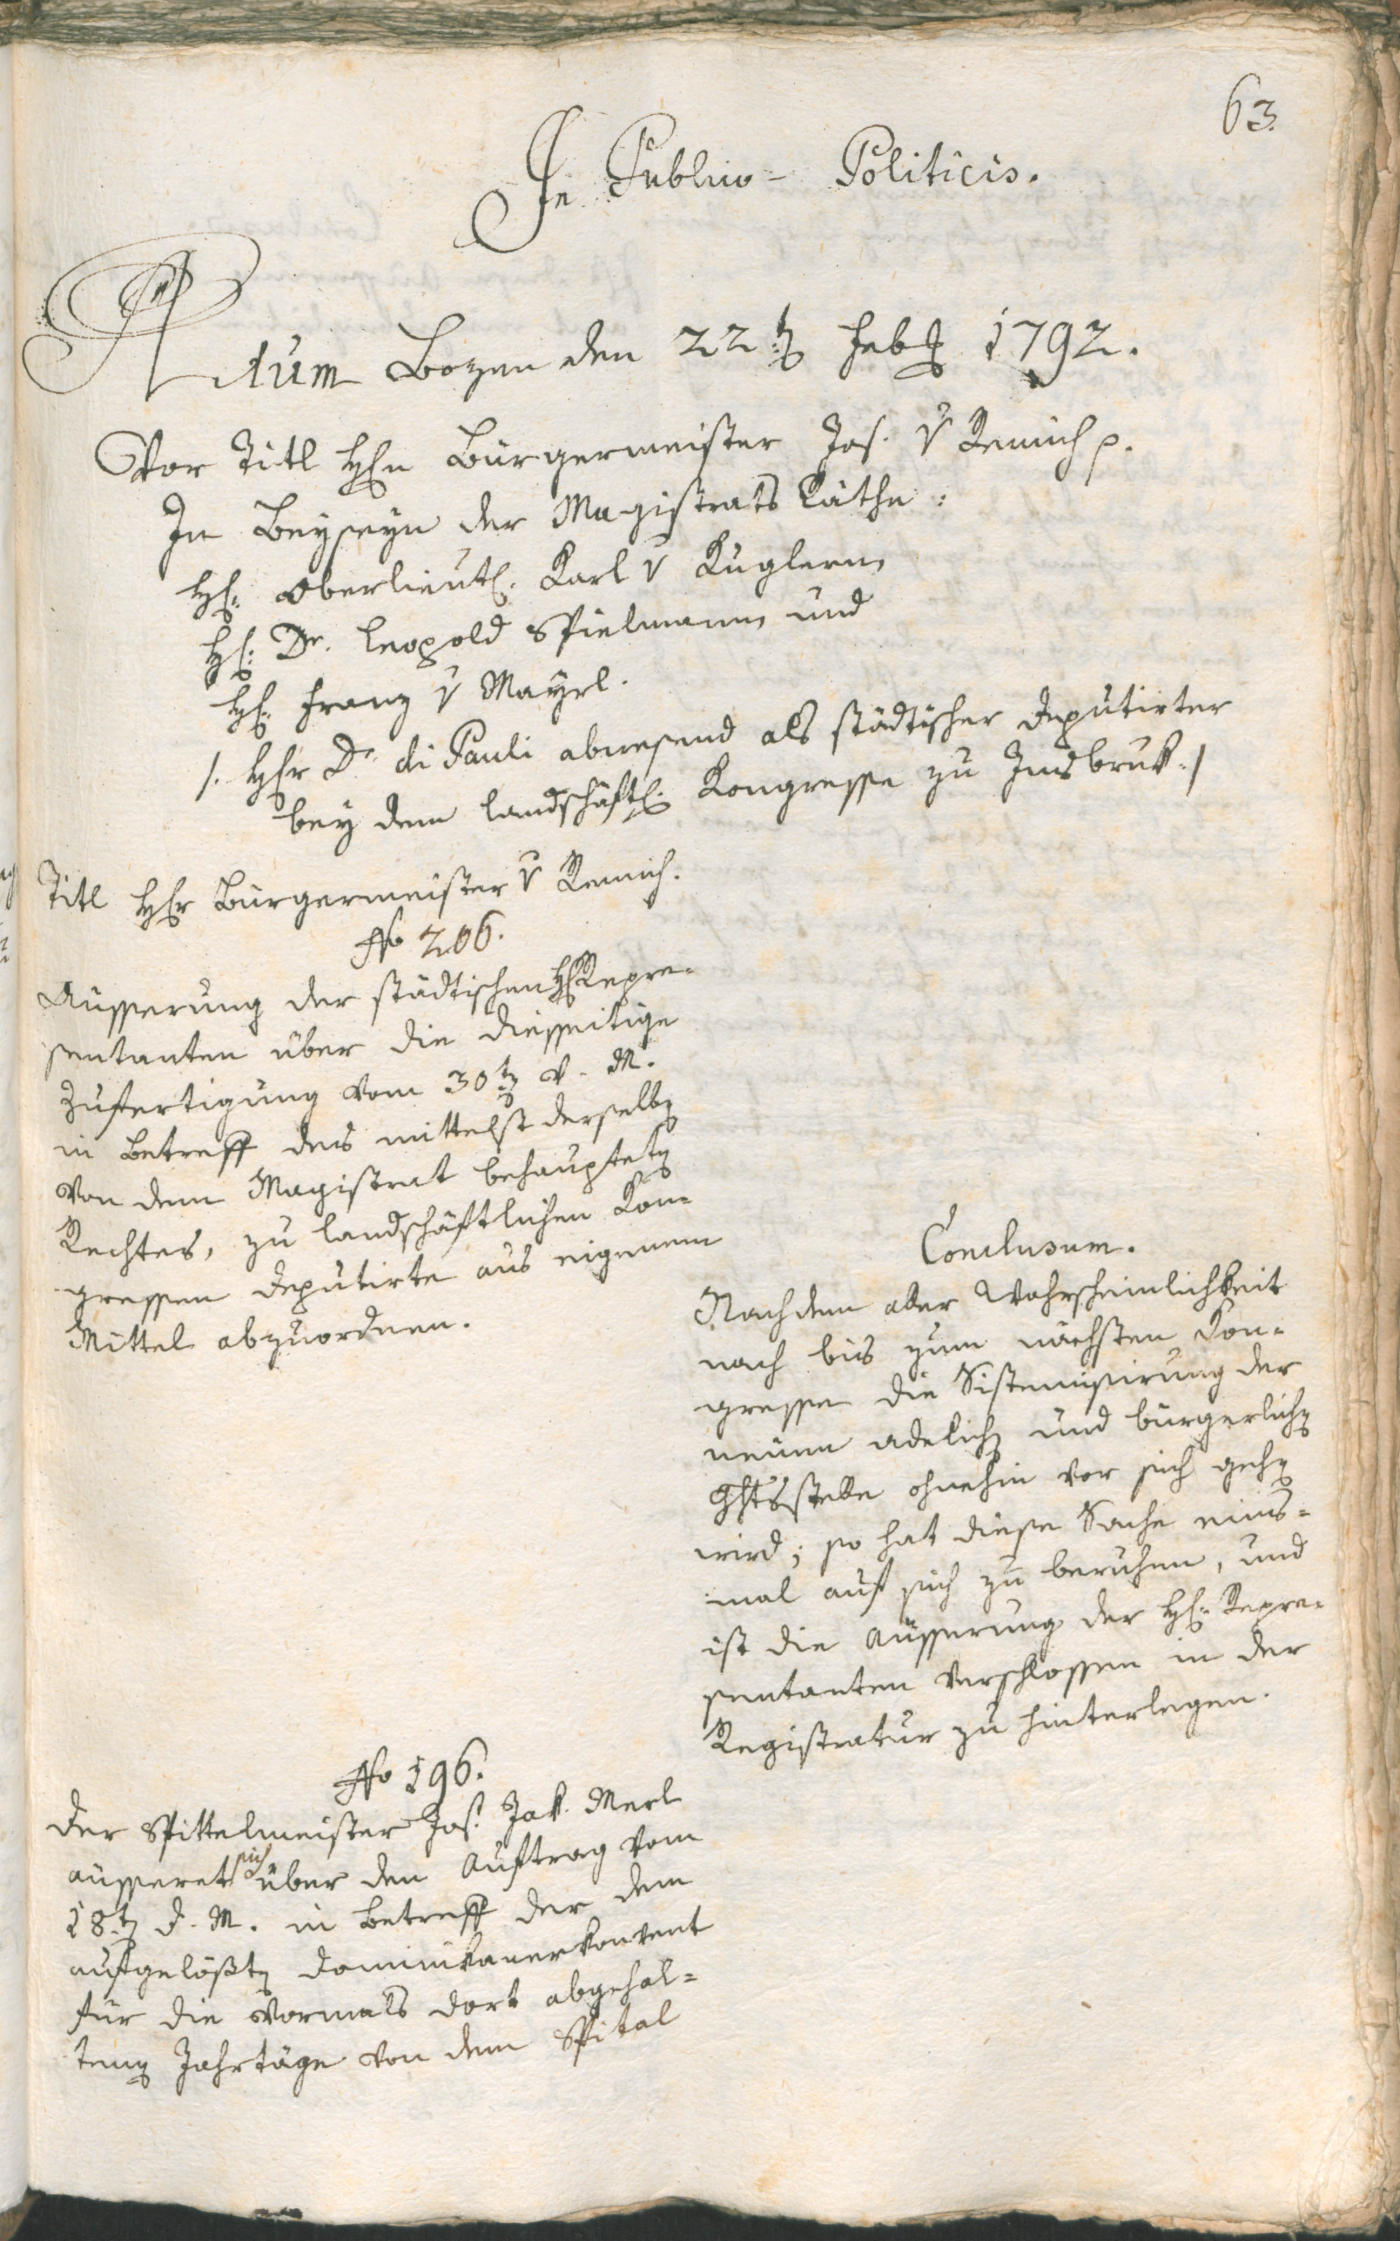 63.
In Publico-Politicis.
Actum Bozen den 22ten Febr 1792.
Vor Titl Hhn Bürgermeister Jos. v Remich p.
In Beyseyn der Magistrats Räthe:
Hh: Oberlieut. Karl v Kuglern
Hh: Dr. Leopold Spielmann und
Hh: Franz v Mayrl.
/. Hhr Dr di Pauli abwesend als städtischer Deputirter
bey dem landschäftl. Kongresse zu Innsbruk./
Titl Hhr Bürgermeister v Remich.
No 206.
Äusserung der städtischen Hh Repre-
sentanten über die diesseitige
Zufertigung vom 30ten v. M.
in Betreff des mittelst derselben
von dem Magistrat behaupteten
Rechtes, zu landschäftlichen Kon-
gressen Deputirte aus eigenem
Mittel abzuordnen.
Conclusum.
Nachdem aller Wahrscheinlichkeit
nach bis zum nächsten Kon-
gresse die Sistemisirung der
neuen adelichen und bürgerlichen
Ghtsstelle ohnehin vor sich gehen
wird; so hat diese Sache eins-
mal auf sich zu beruhen, und
ist die Äusserung der Hh: Repre-
sentanten verschlossen in der
Registratur zu hinterlegen.
No 196.
Der Spittelmeister Jos. Jak. Merl
äusseret sich über den Auftrag vom
18ten d. M. in Betreff der dem
aufgelößten Dominikanerkonvent
für die vormals dort abgehal-
tenen Jahrtäge von dem Spital